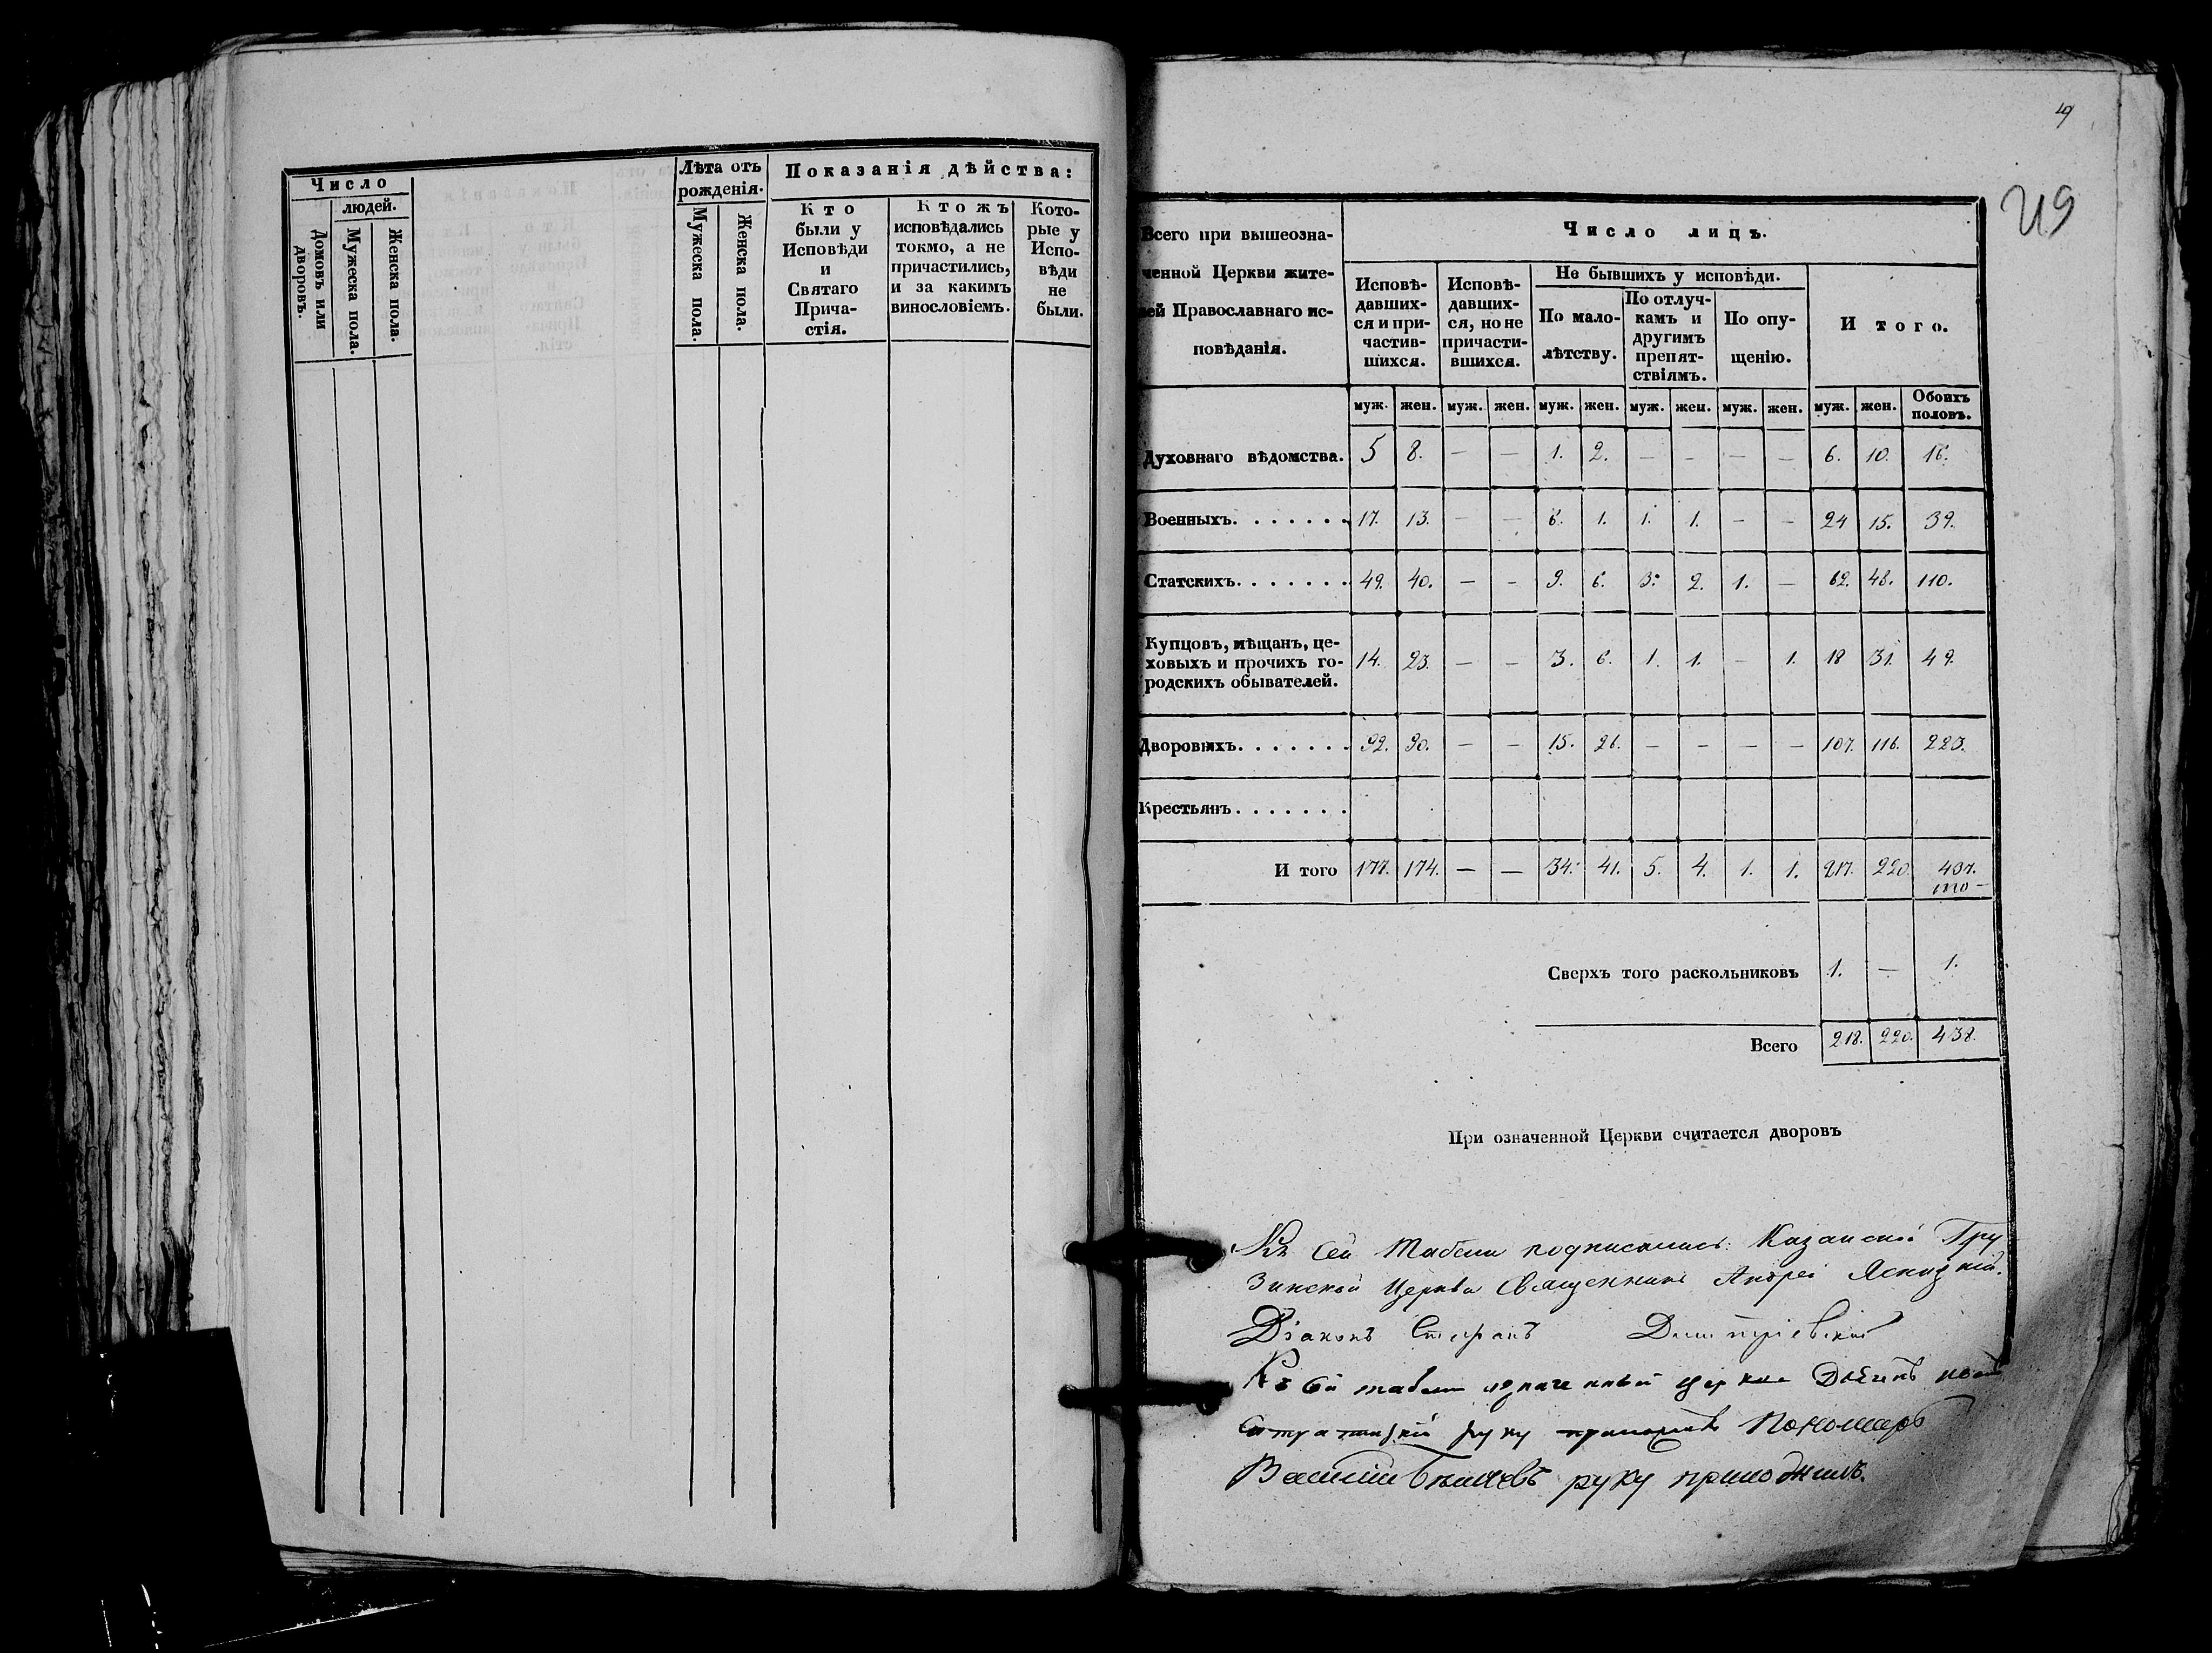 Число
людей.
Домовъ или дворовъ.
Мужеска пола.
Женска пола.
Лѣта отъ
рожденія.
Мужеска пола.
Женска пола.
Показанія дѣйства:
Кто
были у
Исповѣди
и
Святаго
Прича-
стія.
Ктожъ
исповѣдались
токмо, а не
причастились,
и за какимъ
винословіемъ.
Кото-
рые у
Испо-
вѣди
не
были.
49
Всего при вышеозна-
ченной Церкви жите-
лей Православнаго ис-
повѣданія.
Число лицъ.
Исповѣ-
давших-
ся и при-
частив-
шихся.
Исповѣ-
давших-
ся, но не
причасти-
вшихся.
Не бывшихъ у исповѣди.
По мало-
лѣтству.
По отлуч-
камъ и
другимъ
препят-
ствіямъ.
По опу-
щенію.
И того.
муж. жен. муж. жен. муж. жен. муж. жен. муж. жен. муж. жен. Обоихъ половъ.
Духовнаго вѣдомства. 5 8. — — 1. 2. — — — — 6. 10. 16.
Военныхъ. . . . . . . 17. 13. — — 6. 1. 1. 1. — — 24 15. 39.
Статскихъ. . . . . . . 49. 40. — — 9. 6. 3. 2. 1. — 62. 48. 110.
Купцовъ, мѣщанъ, це-
ховыхъ и прочихъ го-
родскихъ обывателей. 14. 23. — — 3. 6. 1. 1. — 1. 18 31. 49.
Дворовыхъ. . . . . . . 92. 90. — — 15. 26. — — — — 107. 116. 223.
Крестьянъ. . . . . . .
И того 177. 174. — — 34. 41. 5. 4. 1. 1. 217. 220. 437.
Сверхъ того раскольниковъ 1. — 1.
Всего 218. 220. 438.
При означенной Церкви считается дворовъ
Къ сей Табели подписались: Казанской Гру
зинской Церкви Священникъ Андрей
Діаконъ Стефанъ Димитріевскій
Къ сей табели церкви
руку приложилъ Пономарь
Василій руку приложилъ.